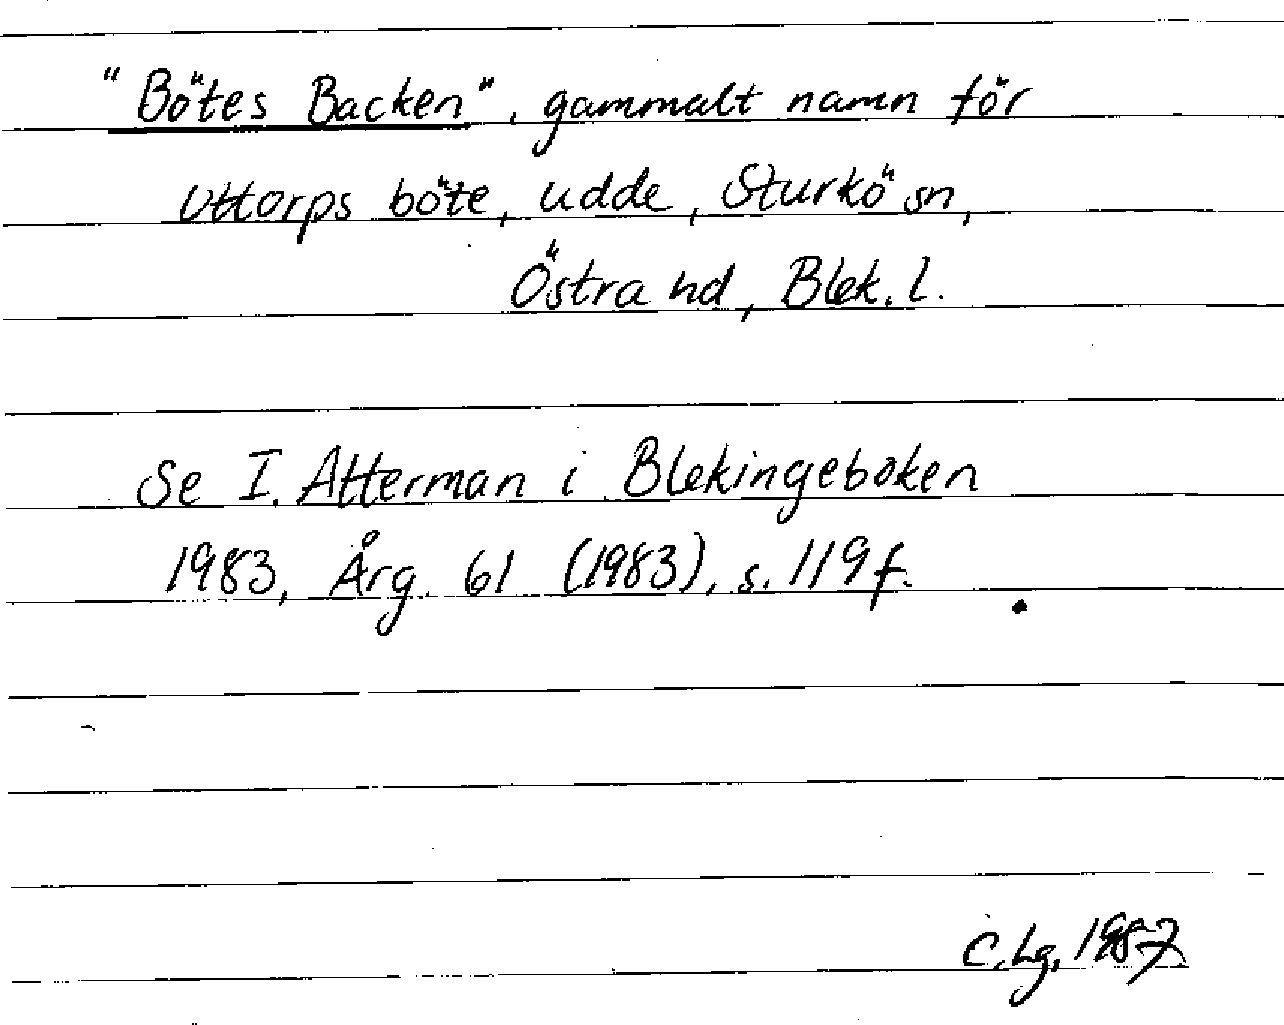 "Bötes Backen", gammalt namn för
Uttorps böte, udde, Sturkö sn,
Östra hd, Blek. l.
Se I. Atterman i Blekingeboken
1983, Årg. 61 (1983), s. 119 f.
C. Lg, 1987